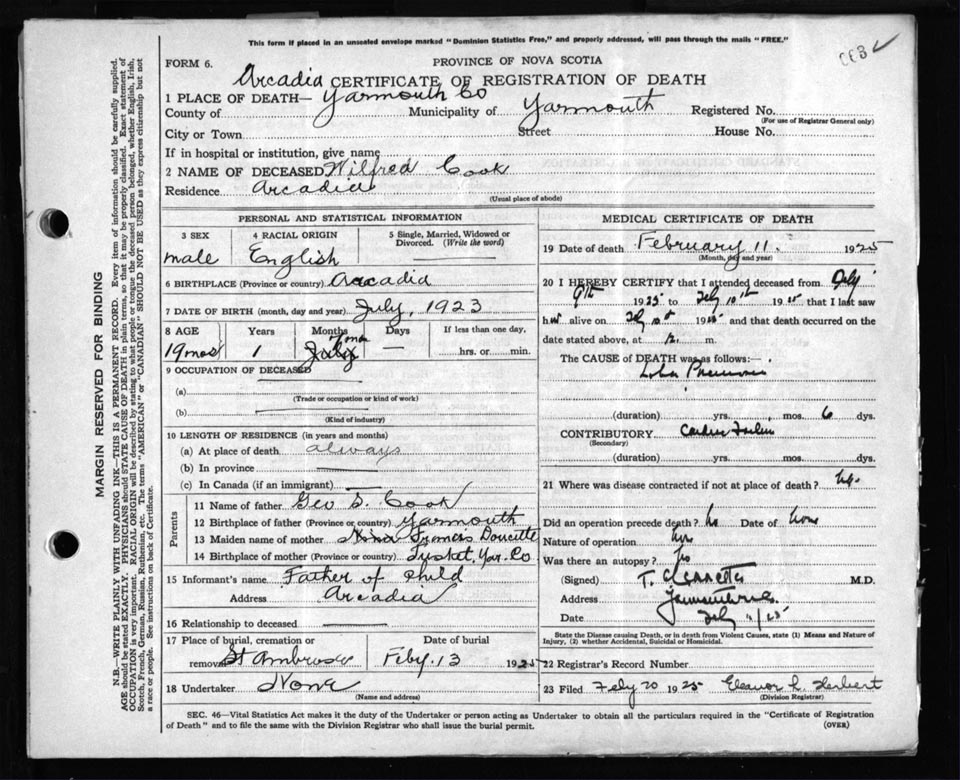 This form if placed in an unsealed envelope marked "Dominion Statistics Free," and properly addressed, will pass through the mails "FREE."
FORM 6.
PROVINCE OF NOVA SCOTIA
Arcadia CERTIFICATE OF REGISTRATION OF DEATH
1 PLACE OF DEATH— Yarmouth Co
County of Municipality of Yarmouth Registered No.
(For use of Registrar General only)
City or Town Street House No.
If in hospital or institution, give name
2 NAME OF DECEASED Wilfred Cook
Residence Arcadia
(Usual place of abode)
PERSONAL AND STATISTICAL INFORMATION
3 SEX 4 RACIAL ORIGIN 5 Single, Married, Widowed or Divorced. (Write the word)
male English
6 BIRTHPLACE (Province or country) Arcadia
7 DATE OF BIRTH (month, day and year) July, 1923
8 AGE Years Months Days If less than one day,
19 mos 1 7 mos July hrs. or min.
9 OCCUPATION OF DECEASED
(a)
(Trade or occupation or kind of work)
(b)
(Kind of industry)
10 LENGTH OF RESIDENCE (in years and months)
(a) At place of death always
(b) In province
(c) In Canada (if an immigrant)
Parents
11 Name of father Geo S. Cook
12 Birthplace of father (Province or country) Yarmouth
13 Maiden name of mother Doucette
14 Birthplace of mother (Province or country) Tusket, Yar. Co
15 Informant's name Father of child
Address Arcadia
16 Relationship to deceased
17 Place of burial, cremation or removal Date of burial
St Ambrose Feby. 13 1925
18 Undertaker None
(Name and address)
MEDICAL CERTIFICATE OF DEATH
19 Date of death February 11. 1925
(Month, day and year)
20 I HEREBY CERTIFY that I attended deceased from Feby
9th 1925 to Feby 10th 1925 that I last saw
h alive on Feby 10th 1925 and that death occurred on the
date stated above, at 12 m.
The CAUSE OF DEATH was as follows:
Lobar Pneumonia
(duration) yrs. mos. 6 dys.
CONTRIBUTORY Cardiac Failure
(Secondary)
(duration) yrs. mos. dys.
21 Where was disease contracted if not at place of death?
Did an operation precede death? no Date of none
Nature of operation
Was there an autopsy? no
(Signed) M.D.
Address Yarmouth N.S.
Date Feby /25
State the Disease causing Death, or in death from Violent Causes, state (1) Means and Nature of Injury, (2) whether Accidental, Suicidal or Homicidal.
22 Registrar's Record Number
23 Filed Feby 20 1925 Eleanor L. Herbert
(Division Registrar)
SEC. 46—Vital Statistics Act makes it the duty of the Undertaker or person acting as Undertaker to obtain all the particulars required in the "Certificate of Registration
of Death" and to file the same with the Division Registrar who shall issue the burial permit. (OVER)
MARGIN RESERVED FOR BINDING
N.B.—WRITE PLAINLY WITH UNFADING INK—THIS IS A PERMANENT RECORD. Every item of information should be carefully supplied.
AGE should be stated EXACTLY. PHYSICIANS should STATE CAUSE OF DEATH in plain terms, so that it may be properly classified. Exact statement of
OCCUPATION is very important. RACIAL ORIGIN will be described by stating to what people or tongue the deceased person belonged, whether English, Irish,
Scotch, French, German, Russian, Ruthenian, etc. The terms "AMERICAN" or "CANADIAN" SHOULD NOT BE USED as they express citizenship but not
a race or people. See instructions on back of Certificate.